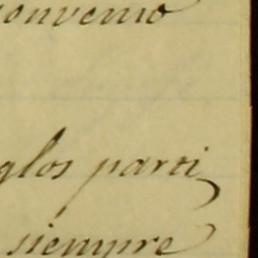 convenio
glos parti
siempre